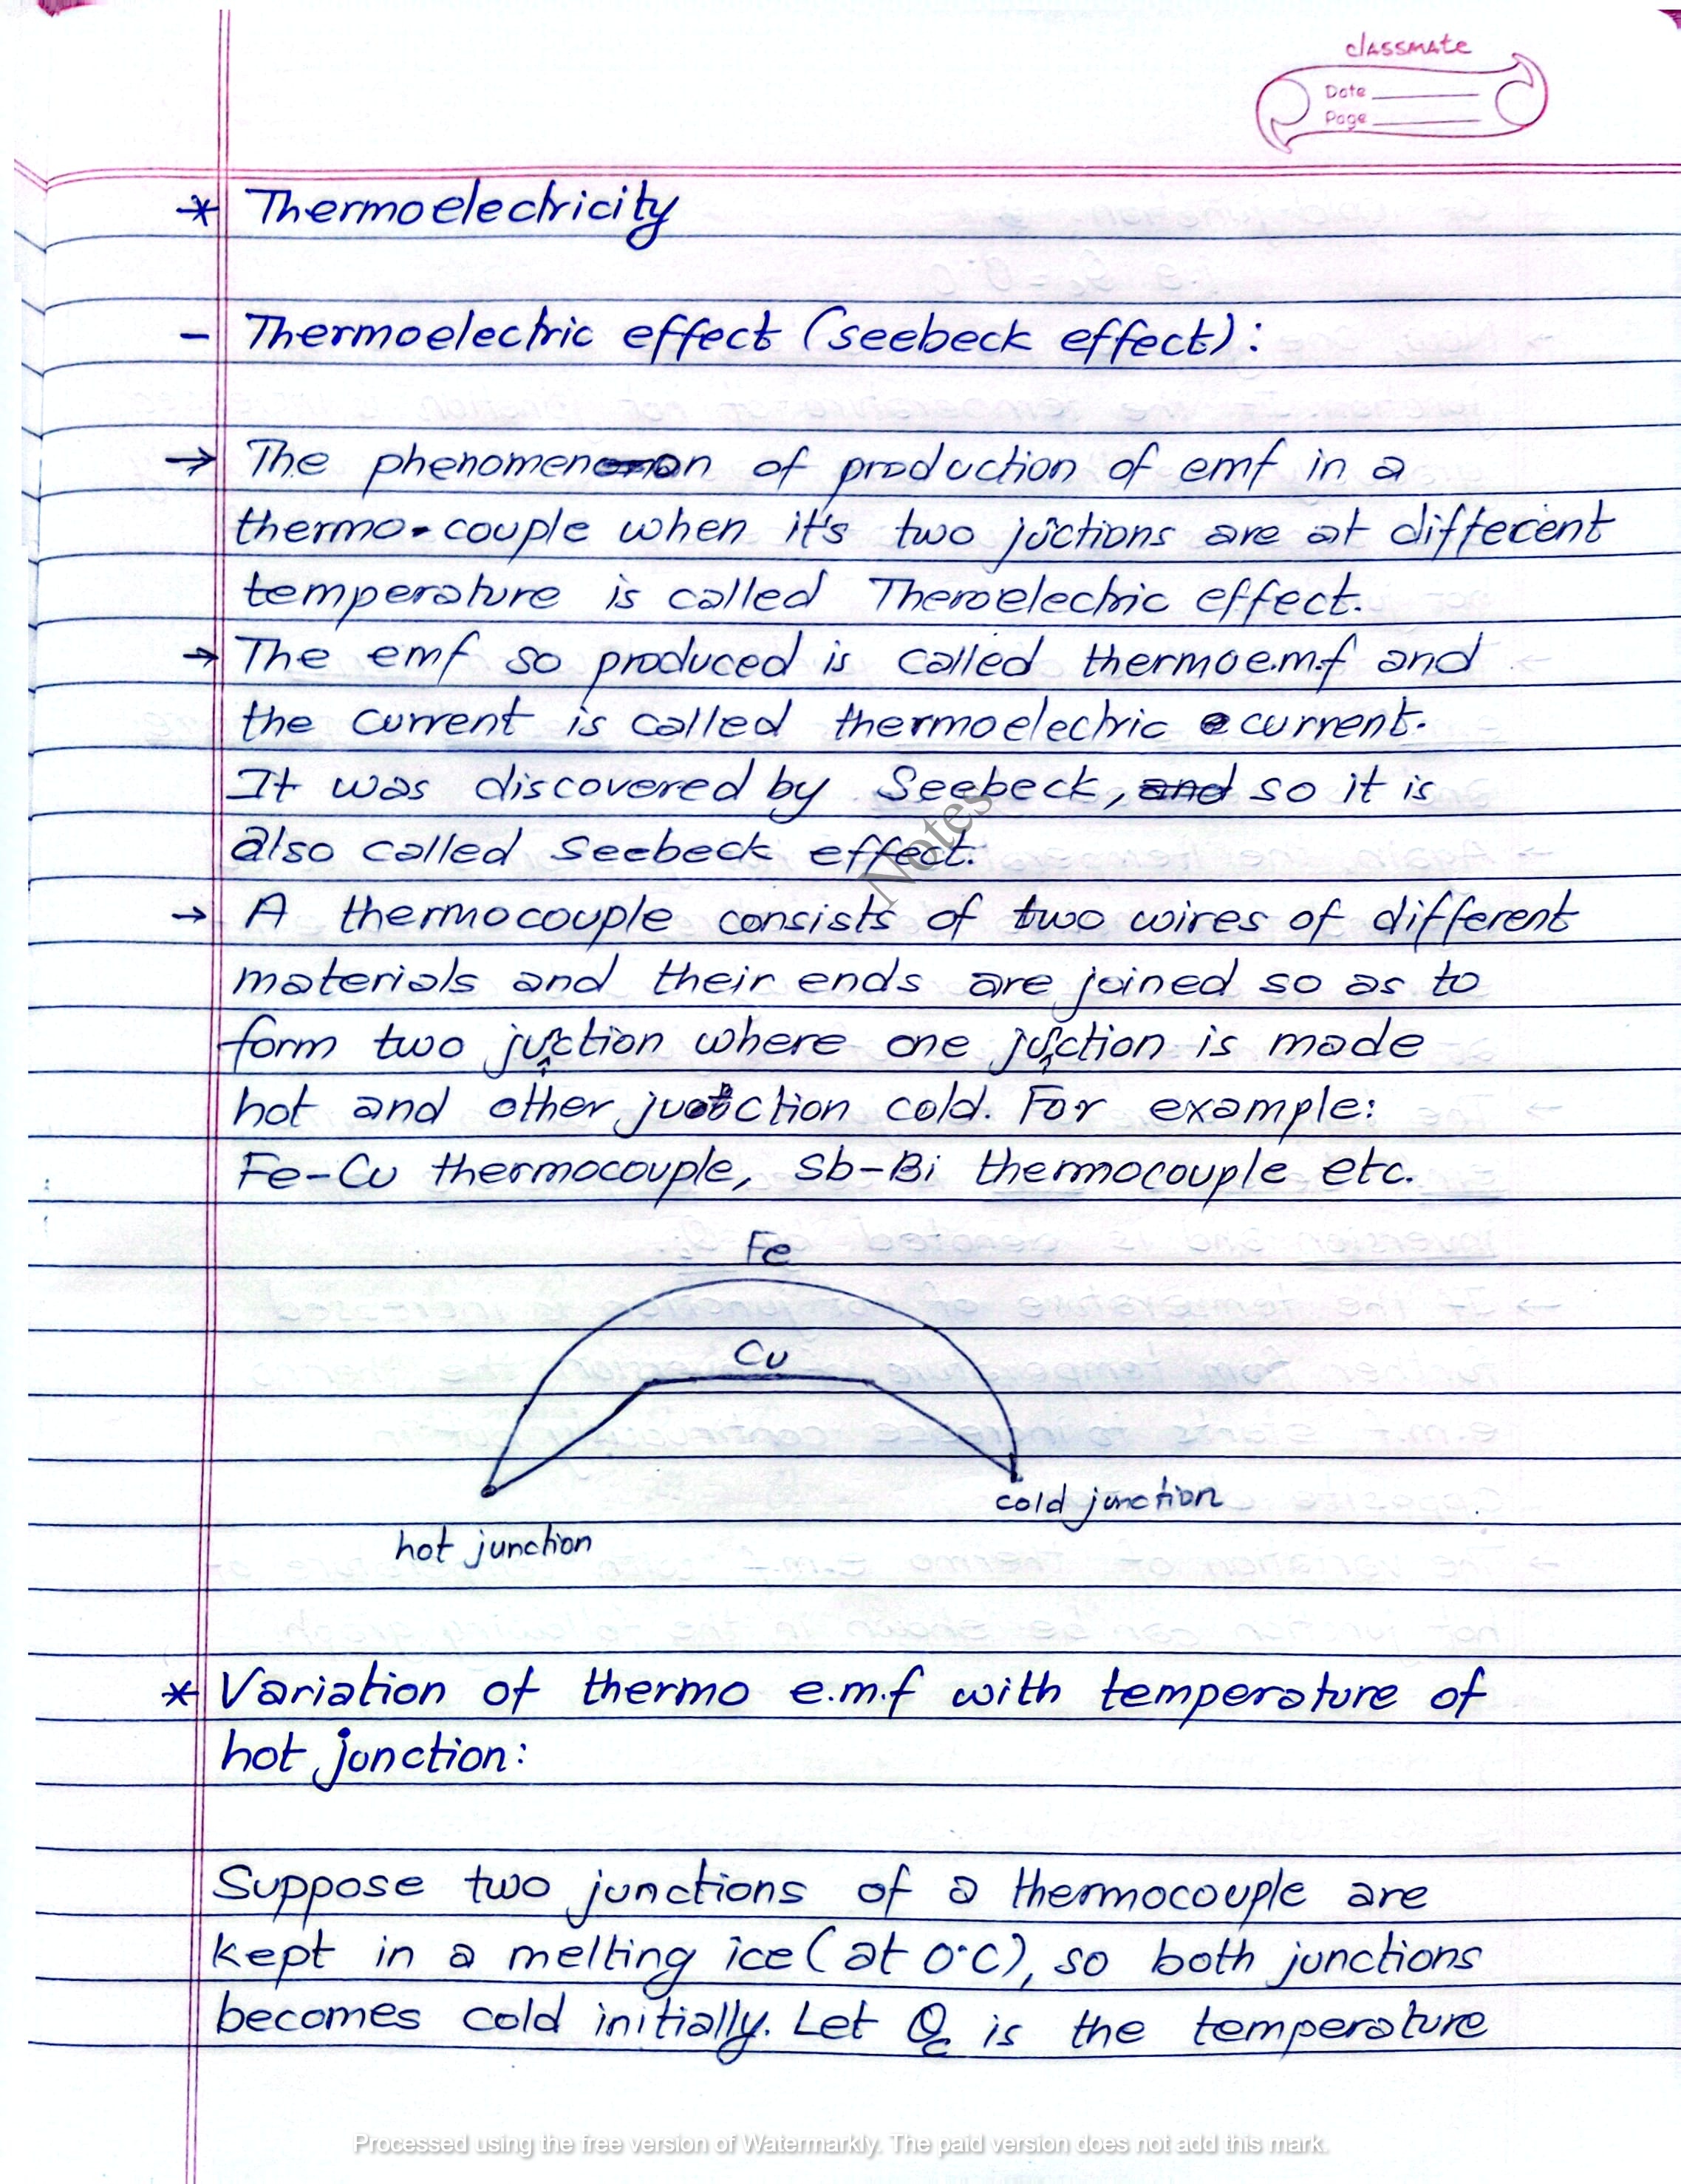 classmate
Date
Page
* Thermoelectricity
- Thermoelectric effect (seebeck effect):
→ The phenomenon of production of emf in a
thermo-couple when it's two juctions are at different
temperature is called Theroelectric effect.
→ The emf so produced is called thermoe.m.f and
the current is called thermoelectric current.
It was discovered by Seebeck, and so it is
also called Seebeck effect.
Notes
→ A thermocouple consists of two wires of different
materials and their ends are joined so as to
form two junction where one junction is made
hot and other junction cold. For example:
Fe-Cu thermocouple, Sb-Bi thermocouple etc.
Fe
Cu
cold junction
hot junction
* Variation of thermo e.m.f with temperature of
hot junction:
Suppose two junctions of a thermocouple are
kept in a melting ice (at 0°C), so both junctions
becomes cold initially. Let θc is the temperature
Processed using the free version of Watermarkly. The paid version does not add this mark.